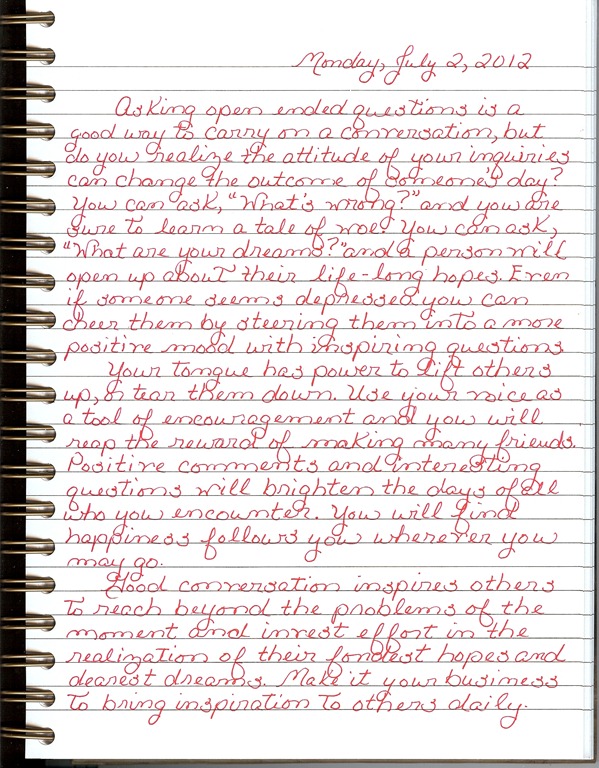 Monday, July 2, 2012
Asking open ended questions is a
good way to carry on a conversation, but
do you realize the attitude of your inquiries
can change the outcome of someone's day?
You can ask, "What's wrong?" and you are
sure to learn a tale of woe. You can ask,
"What are your dreams?" and a person will
open up about their life-long hopes. Even
if someone seems depressed you can
cheer them by steering them into a more
positive mood with inspiring questions
Your tongue has power to lift others
up, or tear them down. Use your voice as
a tool of encouragement and you will
reap the reward of making many friends.
Positive comments and interesting
questions will brighten the days of all
who you encounter. You will find
happiness follows you wherever you
may go.
Good conversation inspires others
to reach beyond the problems of the
moment and invest effort in the
realization of their fondest hopes and
dearest dreams. Make it your business
to bring inspiration to others daily.